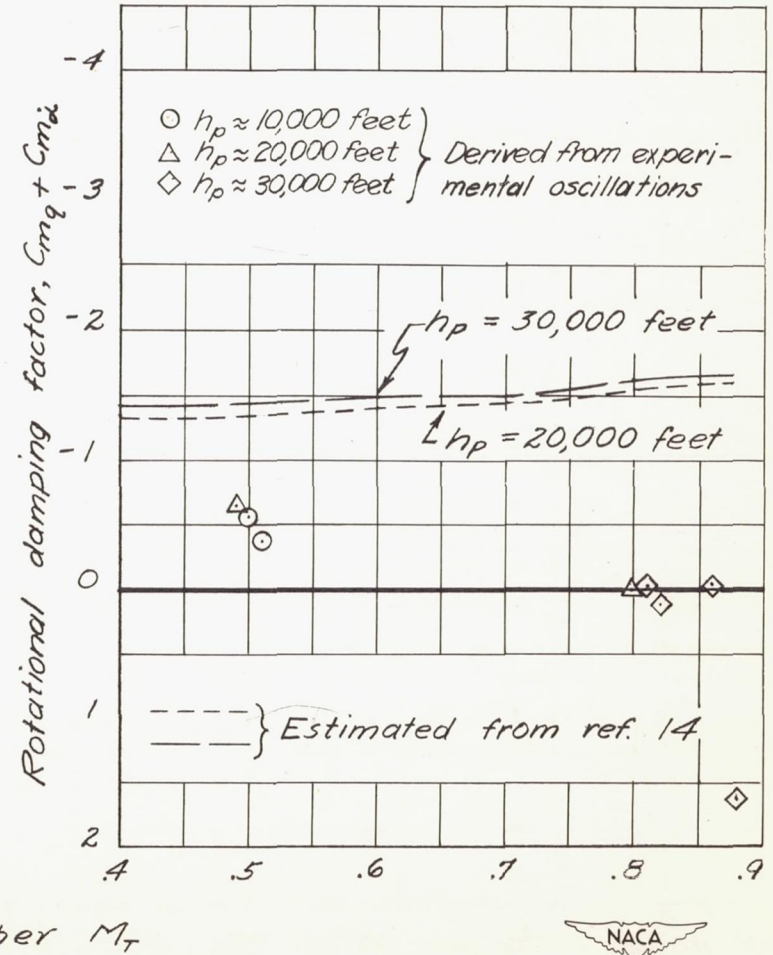 Rotational damping factor, Cmq + Cmα̇
-4
-3
-2
-1
0
1
2
○ hp ≈ 10,000 feet
△ hp ≈ 20,000 feet
◇ hp ≈ 30,000 feet
Derived from experi-
mental oscillations
hp = 30,000 feet
hp = 20,000 feet
Estimated from ref. 14
.4 .5 .6 .7 .8 .9
ber MT
NACA